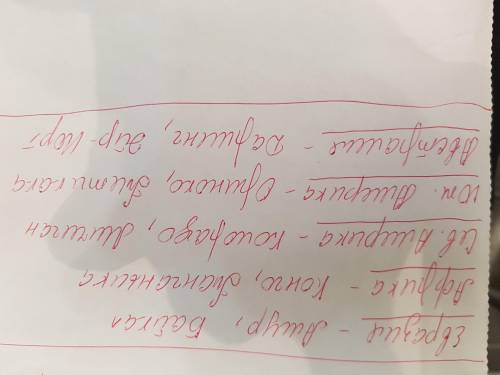 Евразия - Амур, Байкал
Африка - Конго, Танганьика
Сев. Америка - Колорадо, Мичиган
Юж. Америка - Ориноко, Титикака
Австралия - Дарлинг, Эйр-Норт